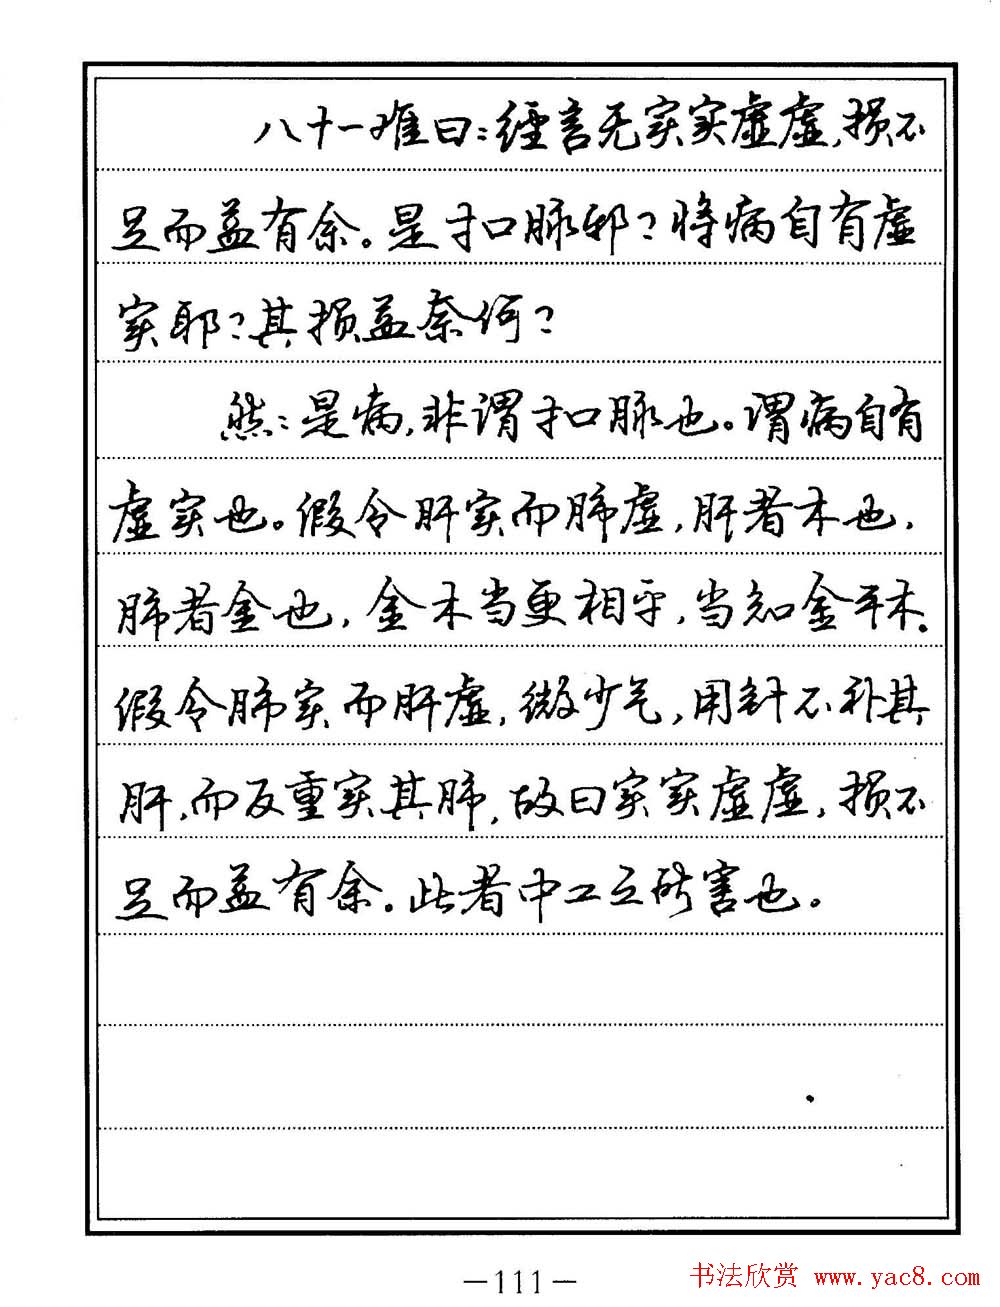 八十一难曰：经言无实实虚虚，损不
足而益有余。是寸口脉邪？将病自有虚
实耶？其损益奈何？
然：是病，非谓寸口脉也。谓病自有
虚实也。假令肝实而肺虚，肝者木也，
肺者金也，金木当更相平，当知金平木。
假令肺实而肝虚，微少气，用针不补其
肝，而反重实其肺，故曰实实虚虚，损不
足而益有余。此者中工之所害也。
—111—
书法欣赏 www.yac8.com